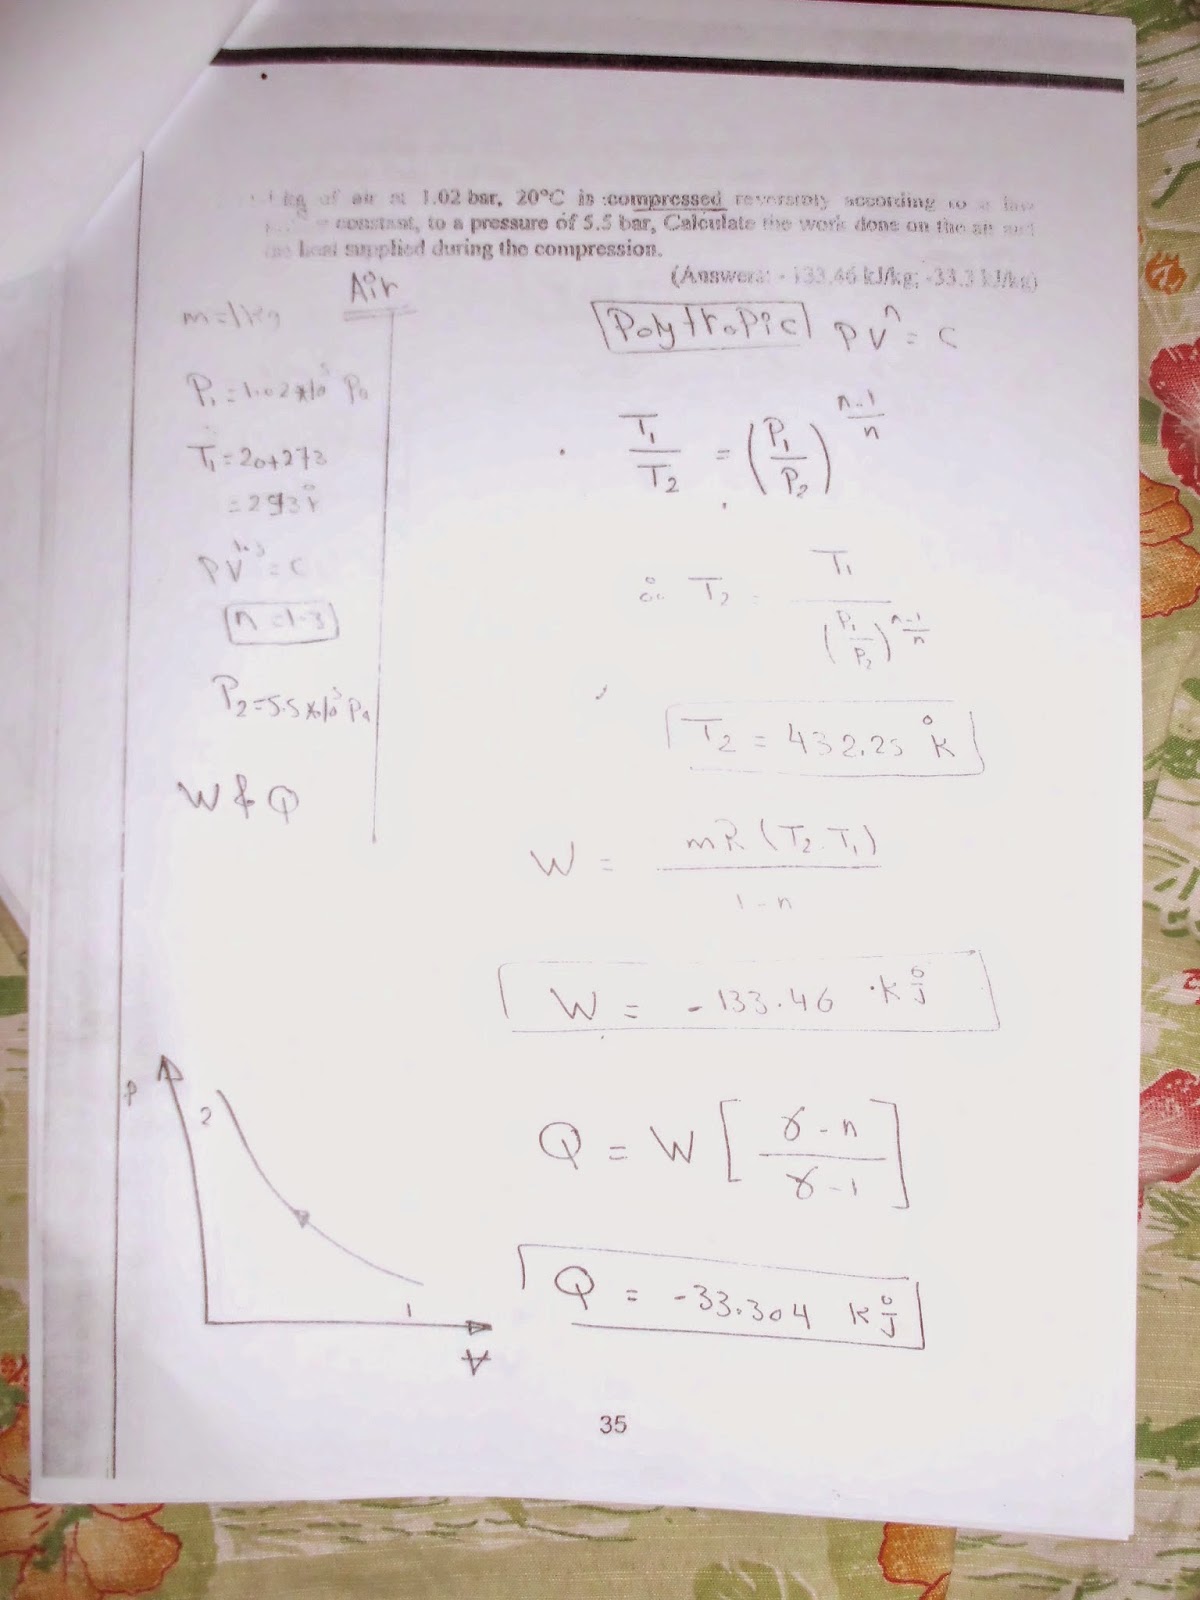 1 kg of air at 1.02 bar, 20°C is compressed reversibly according to a law
= constant, to a pressure of 5.5 bar, Calculate the work done on the air and
the heat supplied during the compression.
(Answers: - 133.46 kJ/kg; -33.3 kJ/kg)
Air
m=1kg
P₁=1.02×10⁵ Pa
T₁=20+273
=293°K
PV^1.3=C
n=1.3
P₂=5.5×10⁵ Pa
W & Q
Polytropic PVⁿ=C
T₁/T₂ = (P₁/P₂)^((n-1)/n)
∴ T₂ = T₁/(P₁/P₂)^((n-1)/n)
T₂ = 432.25 °K
W = mR(T₂-T₁)/(1-n)
W = -133.46 kJ
Q = W[(γ-n)/(γ-1)]
Q = -33.304 kJ
P
2
1
V
35